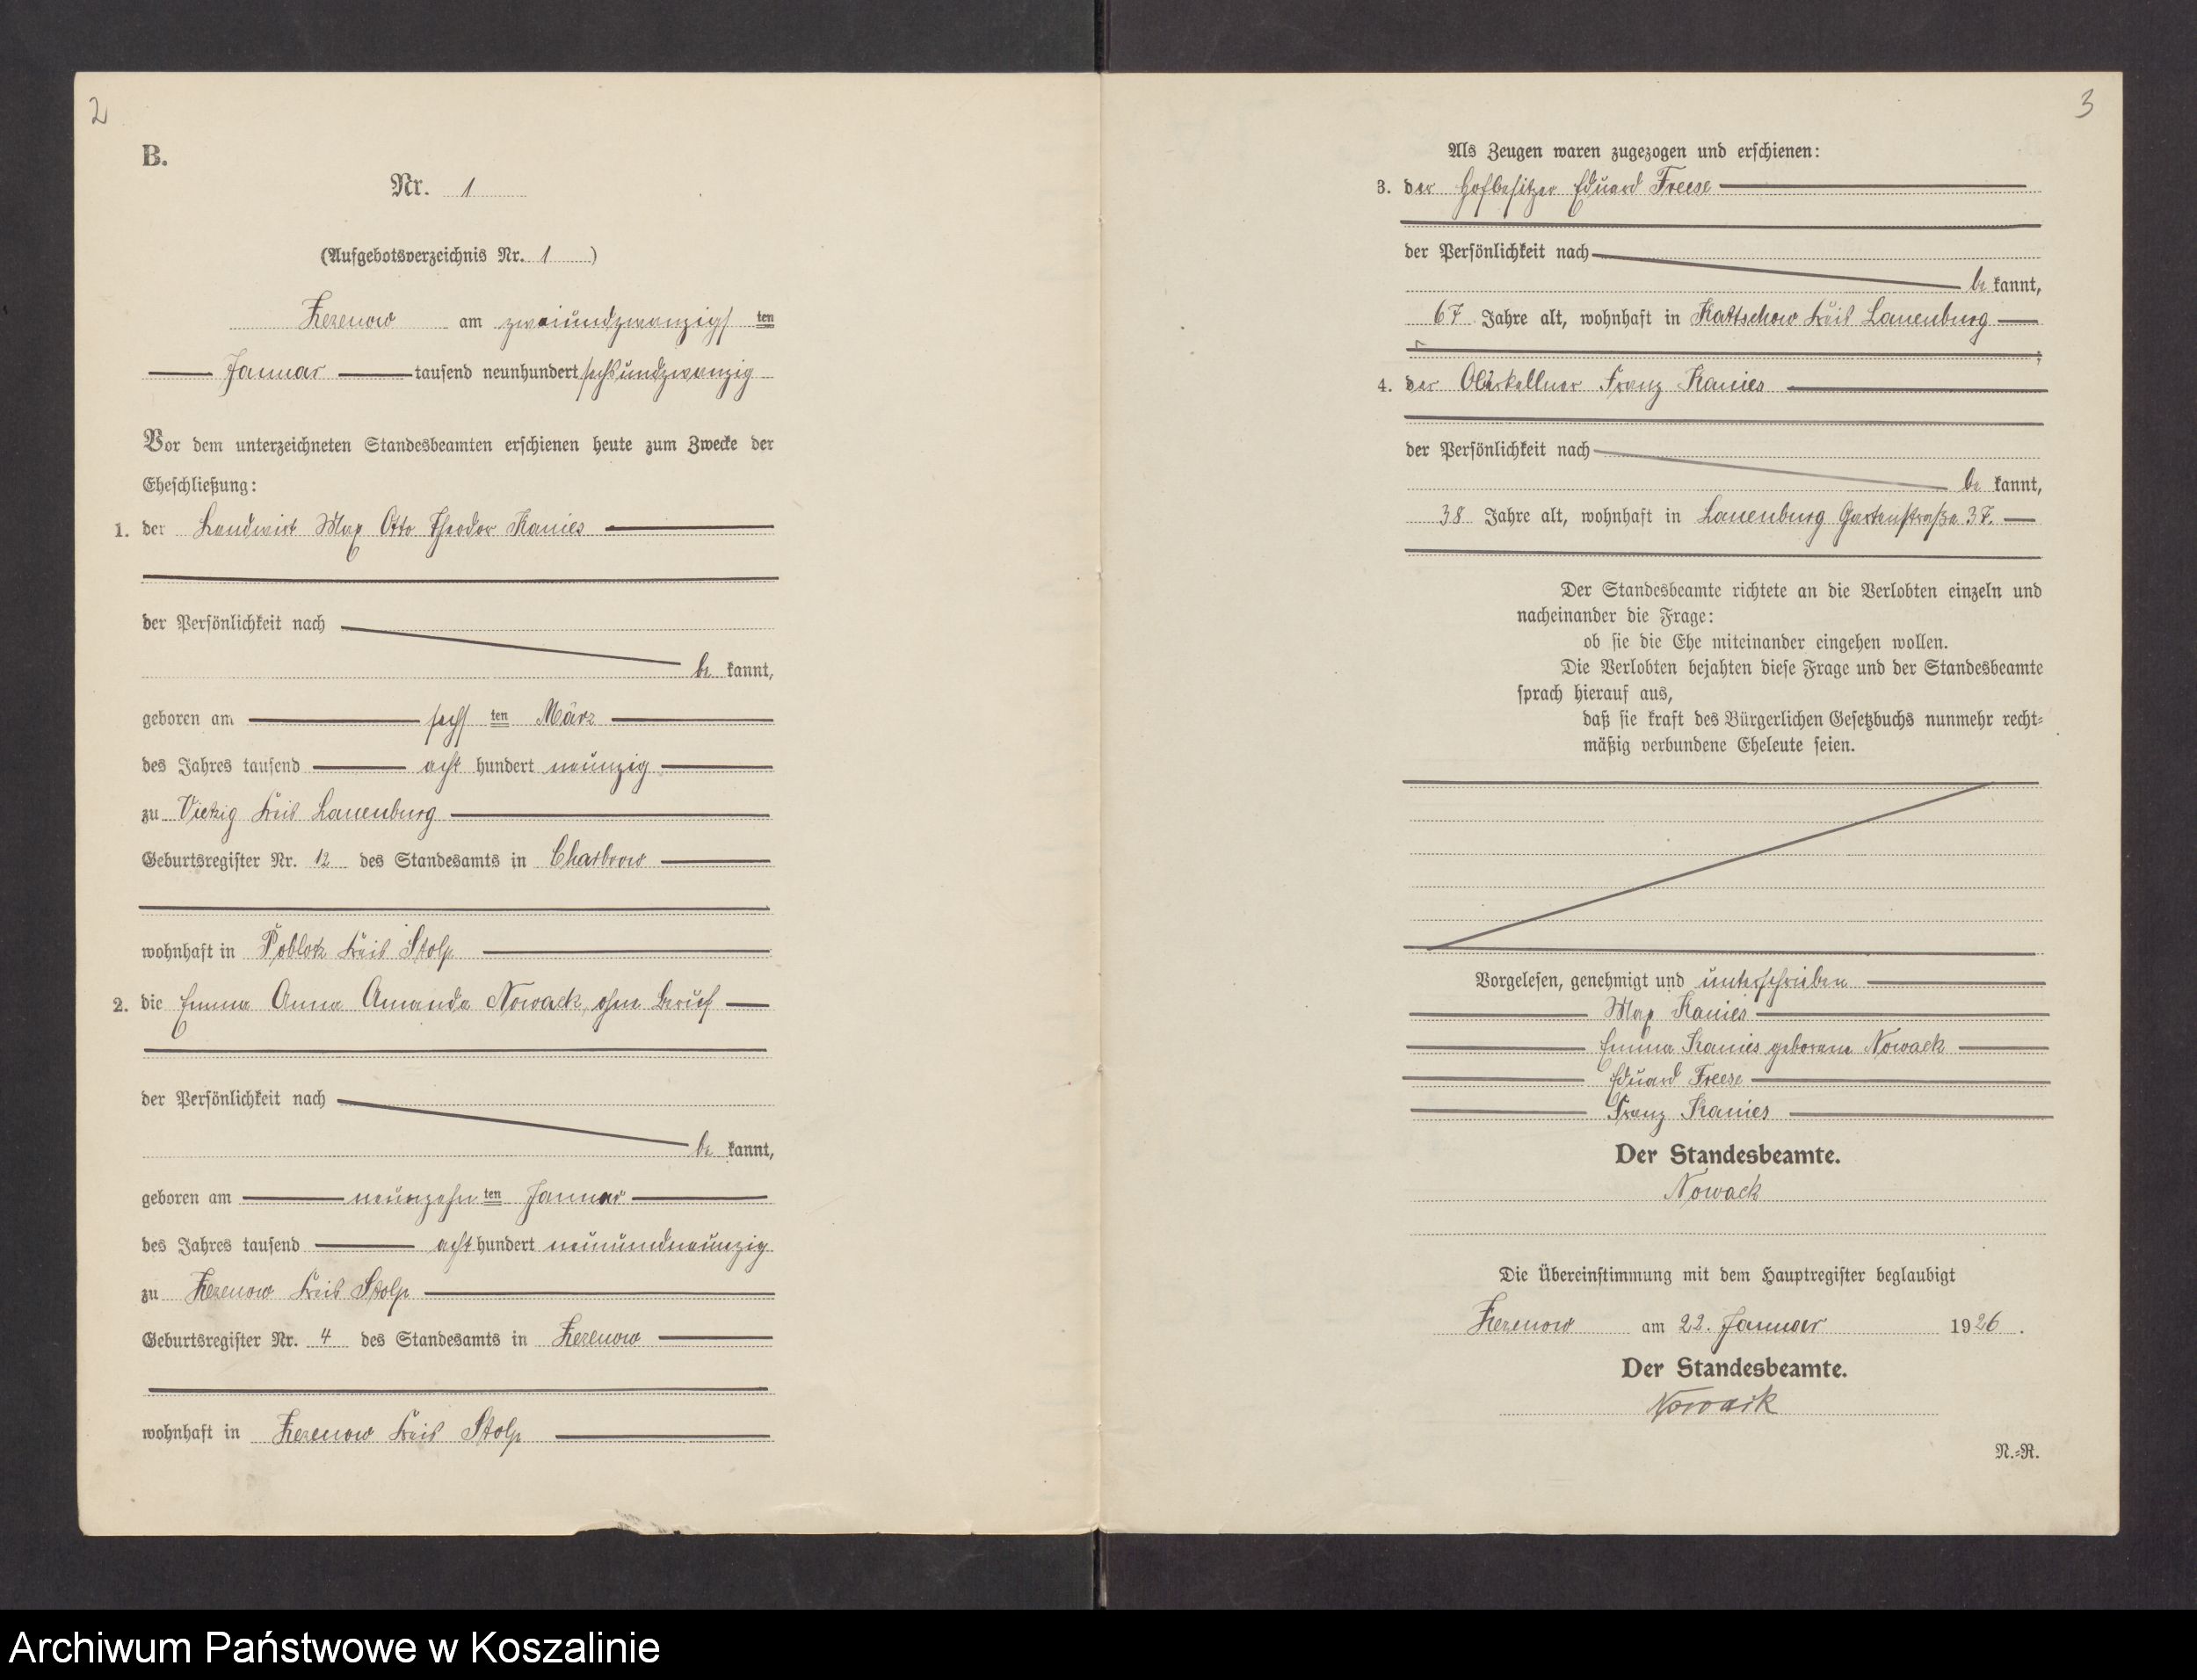 2
B.
Nr. 1
(Aufgebotsverzeichnis Nr. 1)
Zezenow am zweiundzwanzigsten
Januar tausend neunhundert sechsundzwanzig
Vor dem unterzeichneten Standesbeamten erschienen heute zum Zwecke der
Eheschließung:
1. der Landwirt Max Otto Theodor Kanies
der Persönlichkeit nach
be kannt,
geboren am sechsten März
des Jahres tausend acht hundert neunzig
zu Vietzig Kreis Lauenburg
Geburtsregister Nr. 12 des Standesamts in Charbrow
wohnhaft in Poblotz Kreis Stolp
2. die Emma Anna Amanda Nowack, ohne Beruf
der Persönlichkeit nach
be kannt,
geboren am neunzehnten Januar
des Jahres tausend acht hundert neunundneunzig
zu Zezenow Kreis Stolp
Geburtsregister Nr. 4 des Standesamts in Zezenow
wohnhaft in Zezenow Kreis Stolp
3
Als Zeugen waren zugezogen und erschienen:
3. der Hofbesitzer Eduard Freese
der Persönlichkeit nach
be kannt,
67 Jahre alt, wohnhaft in Kattschow Kreis Lauenburg
;
4. der Oberkellner Franz Kanies
der Persönlichkeit nach
be kannt,
38 Jahre alt, wohnhaft in Lauenburg Gartenstraße 37.
Der Standesbeamte richtete an die Verlobten einzeln und
nacheinander die Frage:
ob sie die Ehe miteinander eingehen wollen.
Die Verlobten bejahten diese Frage und der Standesbeamte
sprach hierauf aus,
daß sie kraft des Bürgerlichen Gesetzbuchs nunmehr recht-
mäßig verbundene Eheleute seien.
Vorgelesen, genehmigt und unterschrieben
Max Kanies
Emma Kanies geborene Nowack
Eduard Freese
Franz Kanies
Der Standesbeamte.
Nowack
Die Übereinstimmung mit dem Hauptregister beglaubigt
Zezenow am 22. Januar 1926.
Der Standesbeamte.
Nowack
N.-R.
Archiwum Państwowe w Koszalinie